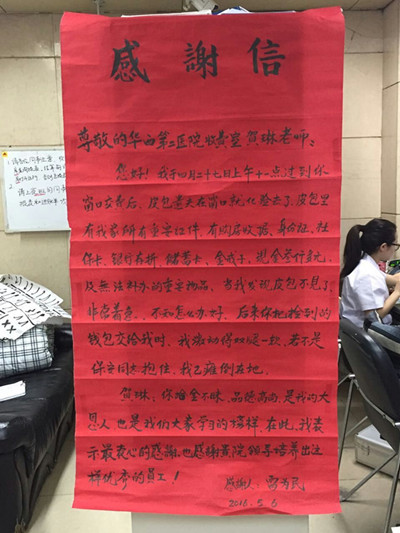 感謝信
尊敬的华西第二医院收费室 贺琳老师:
您好!我于四月二十七日上午十一点过到你
窗口交费后,皮包遗失在窗口就化验去了,皮包里
有我家所有重要证件,有购房收据、身份证、社
保卡、银行存折、储蓄卡、金戒子、现金叁仟多元,
及无法补办的重要物品,当我发现皮包不见了
非常着急,不知怎么办好,后来你把捡到的
钱包交给我时,我激动得双腿一软,若不是
保安同志抱住,我已瘫倒在地。
贺琳,你拾金不昧,品德高尚,是我的大
恩人,也是我们大家学习的榜样,在此,我表
示最衷心的感谢,也感谢贵院领导培养出这
样优秀的员工!
感谢人:雷为民
2016.5.6